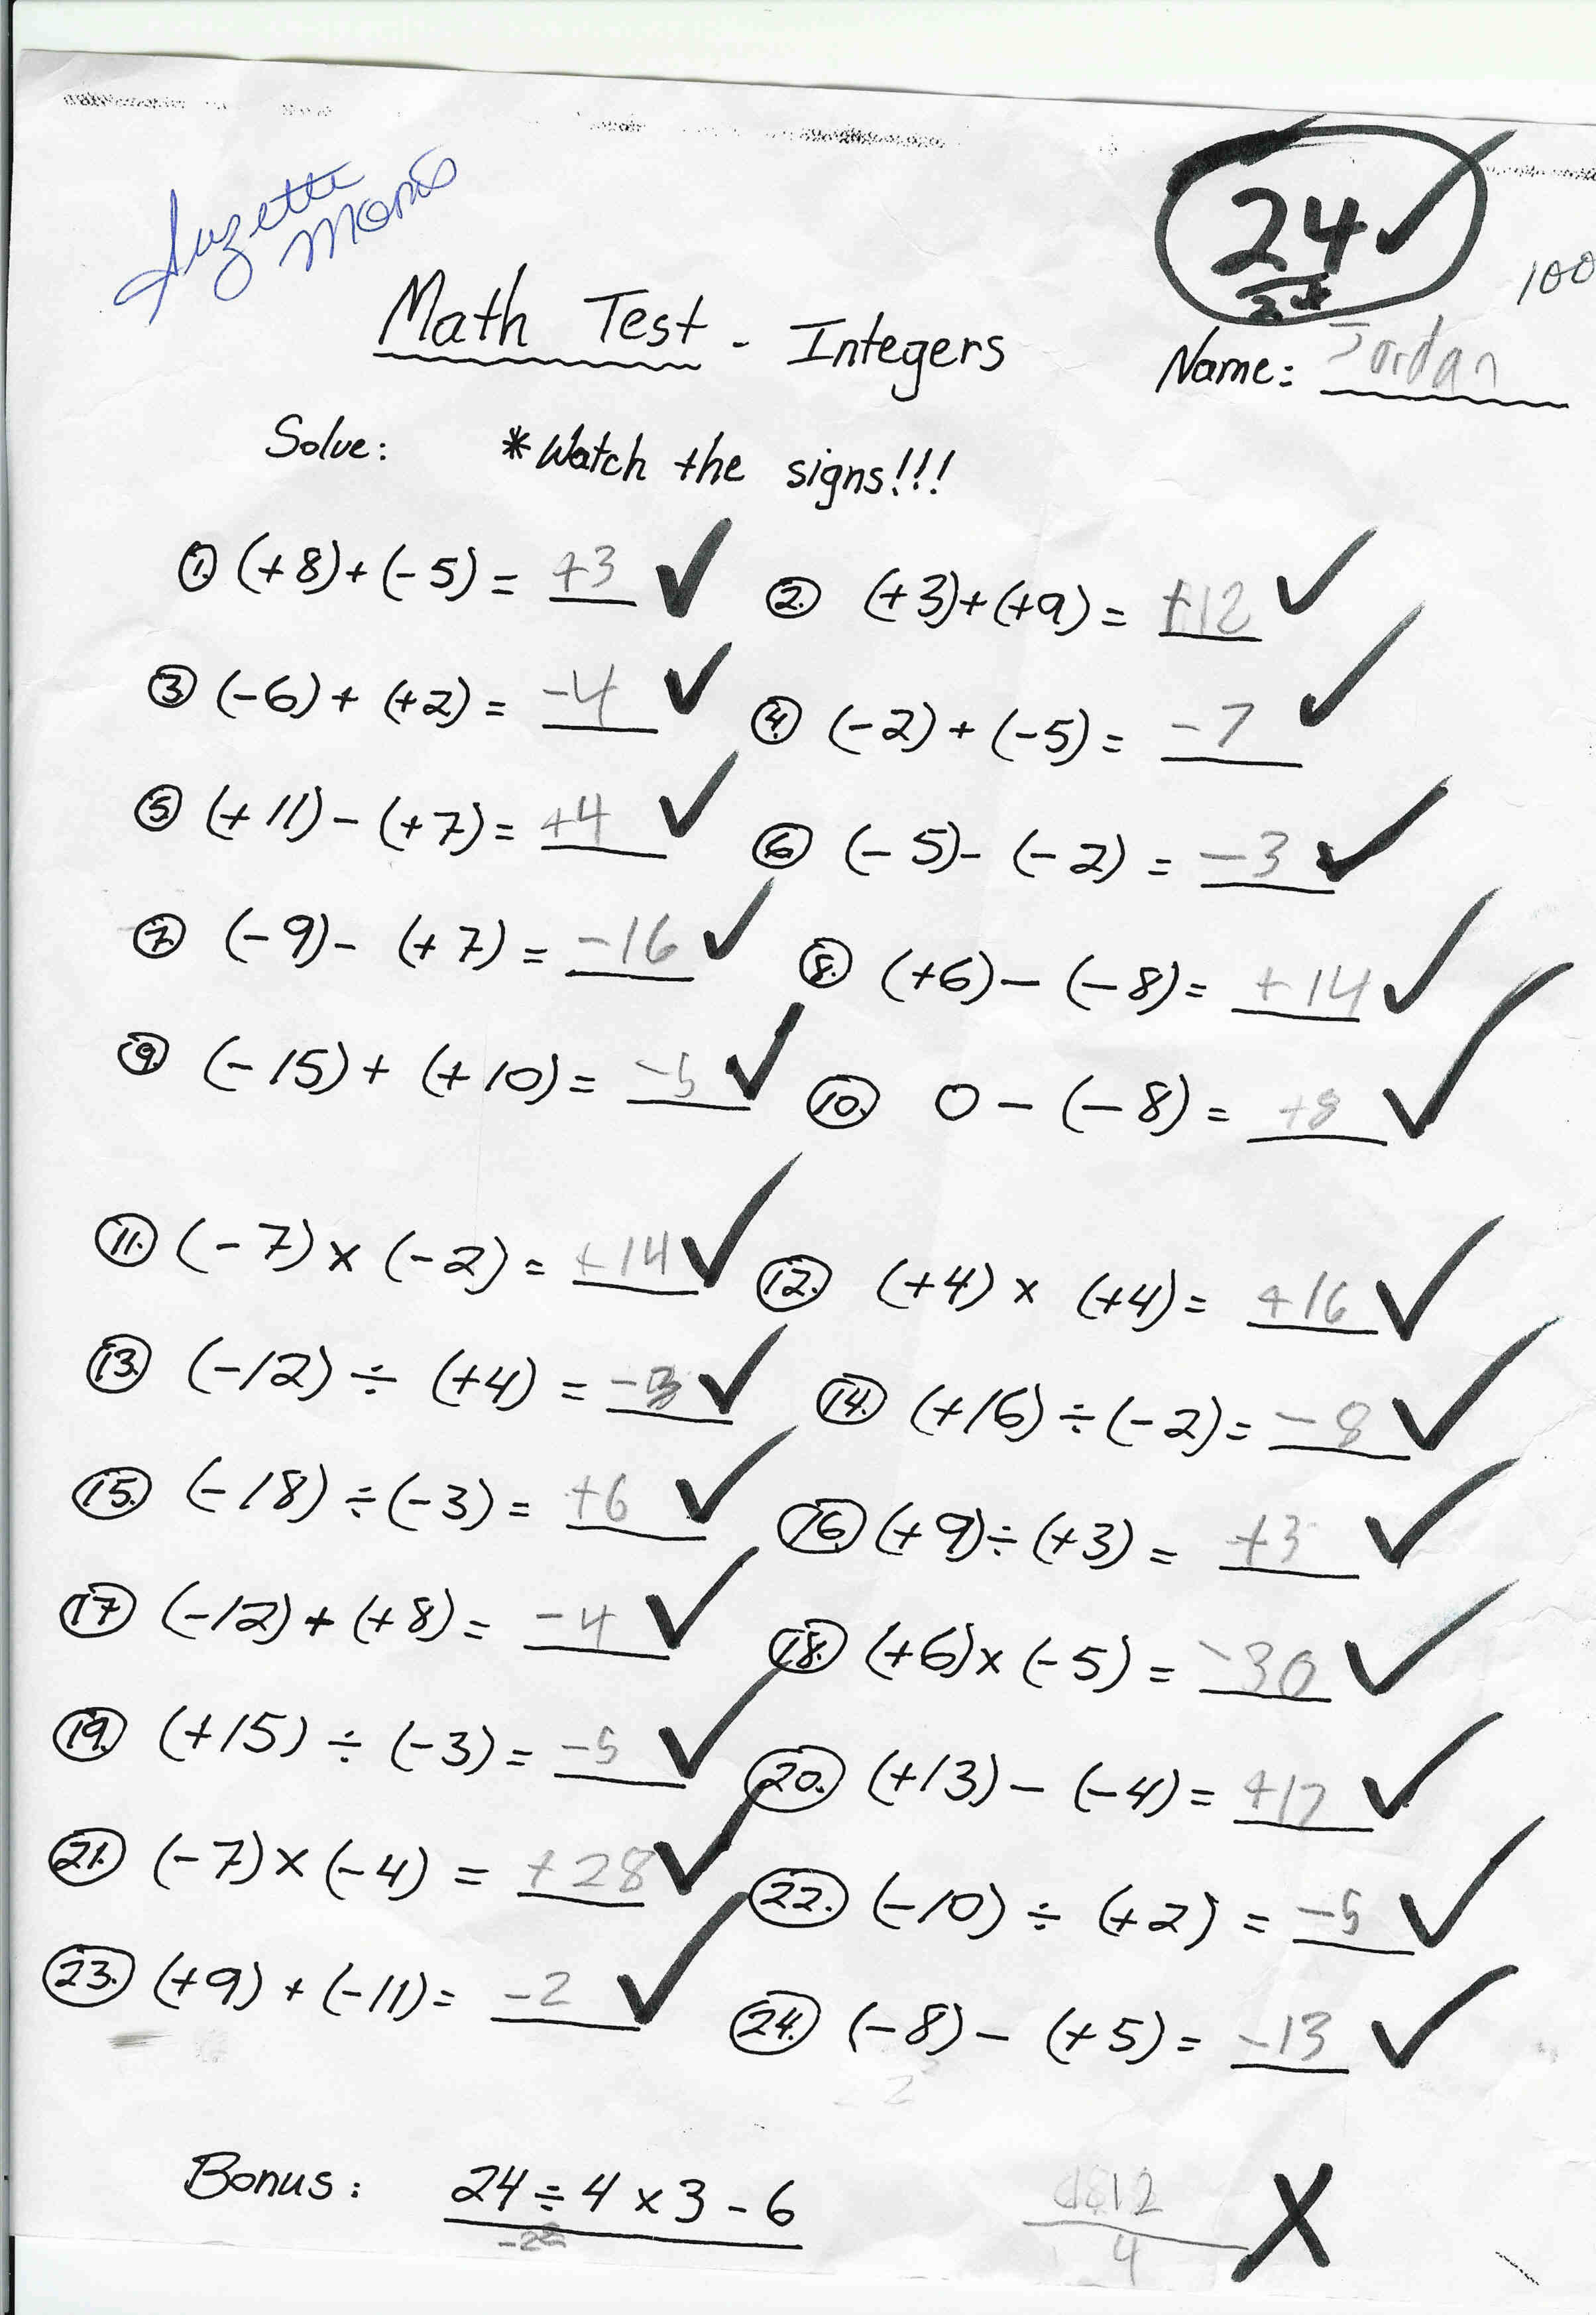 Suzette
Morris
24
24
100
Math Test - Integers
Name: Jordan
Solve: *Watch the signs!!!
1. (+8)+(-5)= +3 2. (+3)+(+9)= +12
3. (-6)+(+2)= -4 4. (-2)+(-5)= -7
5. (+11)-(+7)= +4 6. (-5)-(-2)= -3
7. (-9)-(+7)= -16 8. (+6)-(-8)= +14
9. (-15)+(+10)= -5 10. 0-(-8)= +8
11. (-7)×(-2)= +14 12. (+4)×(+4)= +16
13. (-12)÷(+4)= -3 14. (+16)÷(-2)= -8
15. (-18)÷(-3)= +6 16. (+9)÷(+3)= +3
17. (-12)+(+8)= -4 18. (+6)×(-5)= -30
19. (+15)÷(-3)= -5 20. (+13)-(-4)= +17
21. (-7)×(-4)= +28 22. (-10)÷(+2)= -5
23. (+9)+(-11)= -2 24. (-8)-(+5)= -13
Bonus: 24÷4×3-6 12
4